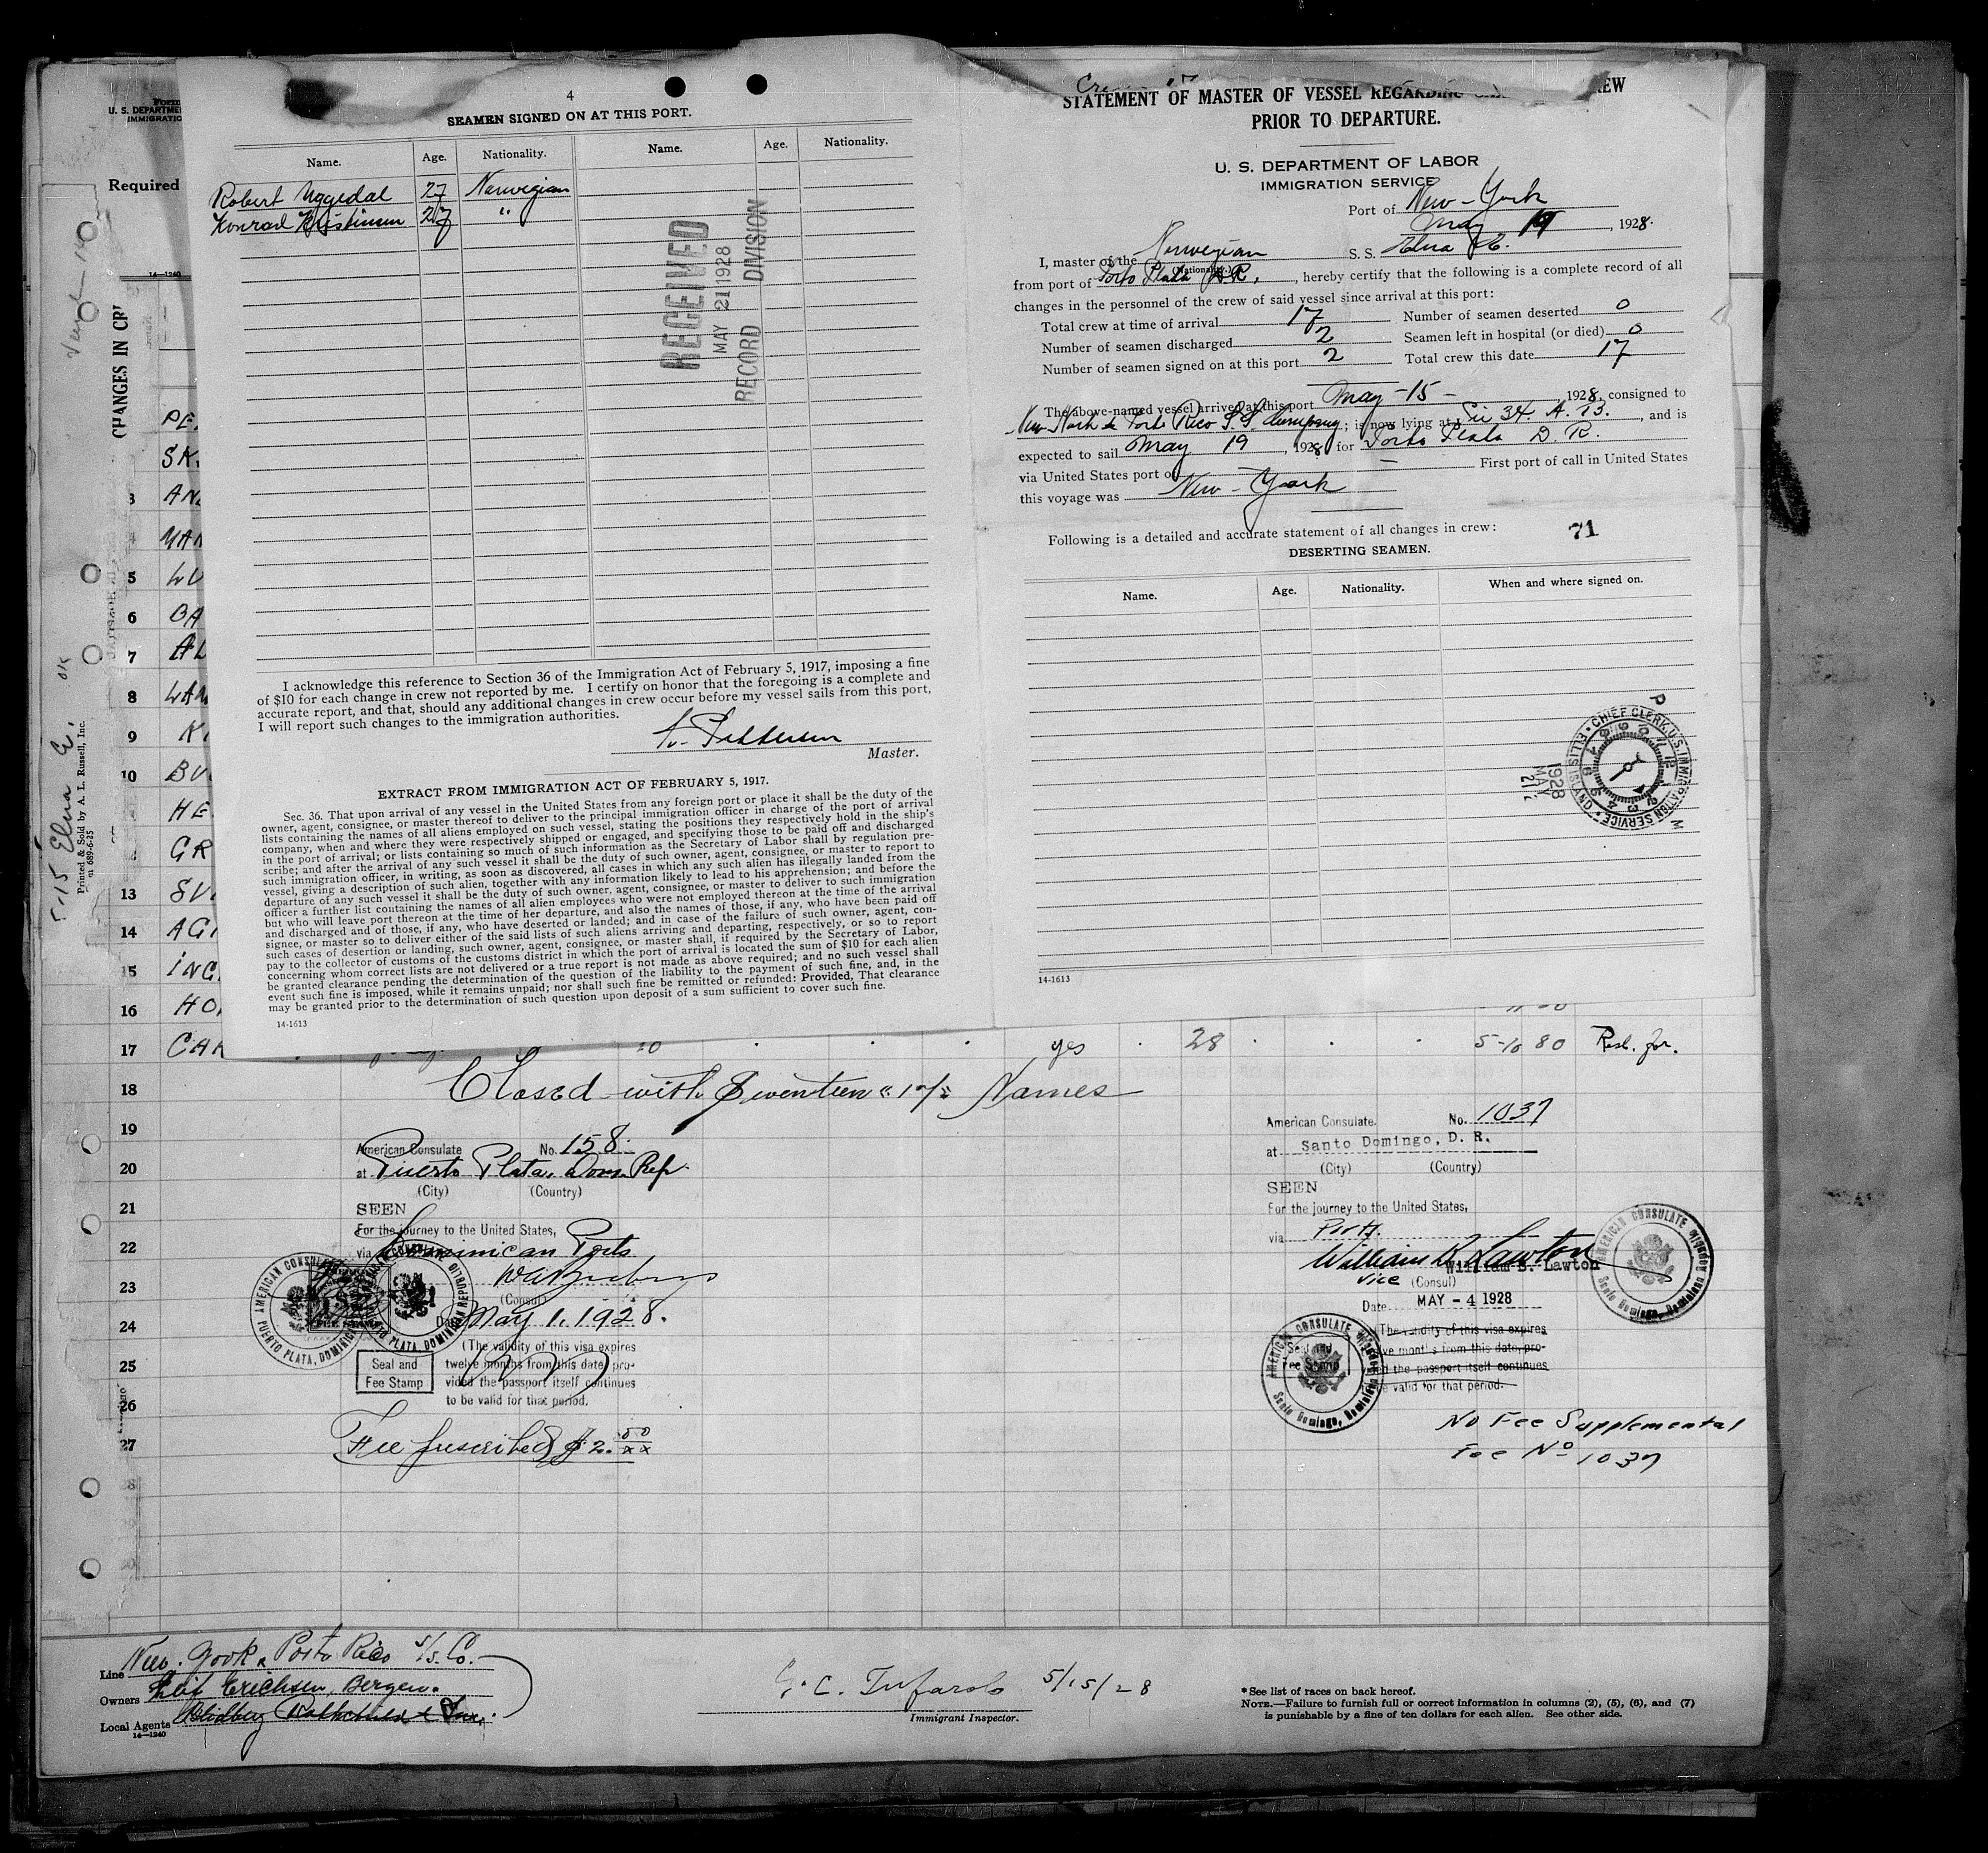 4
SEAMEN SIGNED ON AT THIS PORT.
Name. Age. Nationality. Name. Age. Nationality.
Robert Uggedal 27 Norwegian
Konrad Kristinsen 27 "
RECEIVED
MAY 21 1928
RECORD DIVISION
I acknowledge this reference to Section 36 of the Immigration Act of February 5, 1917, imposing a fine
of $10 for each change in crew not reported by me. I certify on honor that the foregoing is a complete and
accurate report, and that, should any additional changes in crew occur before my vessel sails from this port,
I will report such changes to the immigration authorities.
Master.
EXTRACT FROM IMMIGRATION ACT OF FEBRUARY 5, 1917.
Sec. 36. That upon arrival of any vessel in the United States from any foreign port or place it shall be the duty of the
owner, agent, consignee, or master thereof to deliver to the principal immigration officer in charge of the port of arrival
lists containing the names of all aliens employed on such vessel, stating the positions they respectively hold in the ship's
company, when and where they were respectively shipped or engaged, and specifying those to be paid off and discharged
in the port of arrival; or lists containing so much of such information as the Secretary of Labor shall by regulation pre-
scribe; and after the arrival of any such vessel it shall be the duty of such owner, agent, consignee, or master to report to
such immigration officer, in writing, as soon as discovered, all cases in which any such alien has illegally landed from the
vessel, giving a description of such alien, together with any information likely to lead to his apprehension; and before the
departure of any such vessel it shall be the duty of such owner, agent, consignee, or master to deliver to such immigration
officer a further list containing the names of all alien employees who were not employed thereon at the time of the arrival
but who will leave port thereon at the time of her departure, and also the names of those, if any, who have been paid off
and discharged and of those, if any, who have deserted or landed; and in case of the failure of such owner, agent, con-
signee, or master so to deliver either of the said lists of such aliens arriving and departing, respectively, or so to report
such cases of desertion or landing, such owner, agent, consignee, or master shall, if required by the Secretary of Labor,
pay to the collector of customs of the customs district in which the port of arrival is located the sum of $10 for each alien
concerning whom correct lists are not delivered or a true report is not made as above required; and no such vessel shall
be granted clearance pending the determination of the question of the liability to the payment of such fine, and, in the
event such fine is imposed, while it remains unpaid; nor shall such fine be remitted or refunded: Provided, That clearance
may be granted prior to the determination of such question upon deposit of a sum sufficient to cover such fine.
14-1613
STATEMENT OF MASTER OF VESSEL REGARDING
PRIOR TO DEPARTURE.
U. S. DEPARTMENT OF LABOR
IMMIGRATION SERVICE
Port of New-York
May 19, 1928.
I, master of the Norwegian S. S. Elna E.
(Nationality.)
from port of Porto Plata D.R., hereby certify that the following is a complete record of all
changes in the personnel of the crew of said vessel since arrival at this port:
Total crew at time of arrival 17 Number of seamen deserted 0
Number of seamen discharged 2 Seamen left in hospital (or died) 0
Number of seamen signed on at this port 2 Total crew this date 17
The above-named vessel arrived at this port May-15- 1928, consigned to
New York & Porto Rico S.S. Company; is now lying at Pier 34. A. B., and is
expected to sail May 19, 1928 for Porto Plata D. R.
via United States port of — First port of call in United States
this voyage was New-York
Following is a detailed and accurate statement of all changes in crew:
71
DESERTING SEAMEN.
Name. Age. Nationality. When and where signed on.
CHIEF CLERK, U.S. IMMIGRATION SERVICE
ELLIS ISLAND
1928
MAY
21
14-1613
U. S. DEPARTME
IMMIGRATIO
Required
14—1240
CHANGES IN CR
PE
SK
3 AN
MAN
5 LU
6 BA
7 AL
8 LAN
9 K
10 BU
HE
GR
13 SV
14 AG
15 ING
16 HO
17 CAR
yes 28 5-10 80
18 Closed with Seventeen "17" Names
19
20
21
22
23
24
25
26
27
28
5-15 Elna E. OK
Printed & Sold by A. L. Russell, Inc.
American Consulate No. 158.
at Puerto Plata, Dom. Rep.
(City) (Country)
SEEN
For the journey to the United States,
via Dominican Ports
(Consul)
Date May 1. 1928.
(The validity of this visa expires
twelve months from this date, pro-
vided the passport itself continues
to be valid for that period.
Seal and
Fee Stamp
AMERICAN CONSULATE
PUERTO PLATA, DOMINICAN REPUBLIC
Fee prescribed $2.50
American Consulate. No. 1037
at Santo Domingo, D. R.
(City) (Country)
SEEN
For the journey to the United States,
via Ports.
William B. Lawton
William B. Lawton
Vice (Consul)
Date MAY - 4 1928
(The validity of this visa expires
ve months from this date, pro-
d the passport itself continues
be valid for that period.
AMERICAN CONSULATE
Santo Domingo, Dominican Republic
No Fee Supplemental
Fee No 1037
Line New York & Porto Rico S/S. Co.
Owners Leif Erichsen, Bergen.
Local Agents
14—1240
5/15/28
Immigrant Inspector.
*See list of races on back hereof.
NOTE.—Failure to furnish full or correct information in columns (2), (5), (6), and (7)
is punishable by a fine of ten dollars for each alien. See other side.